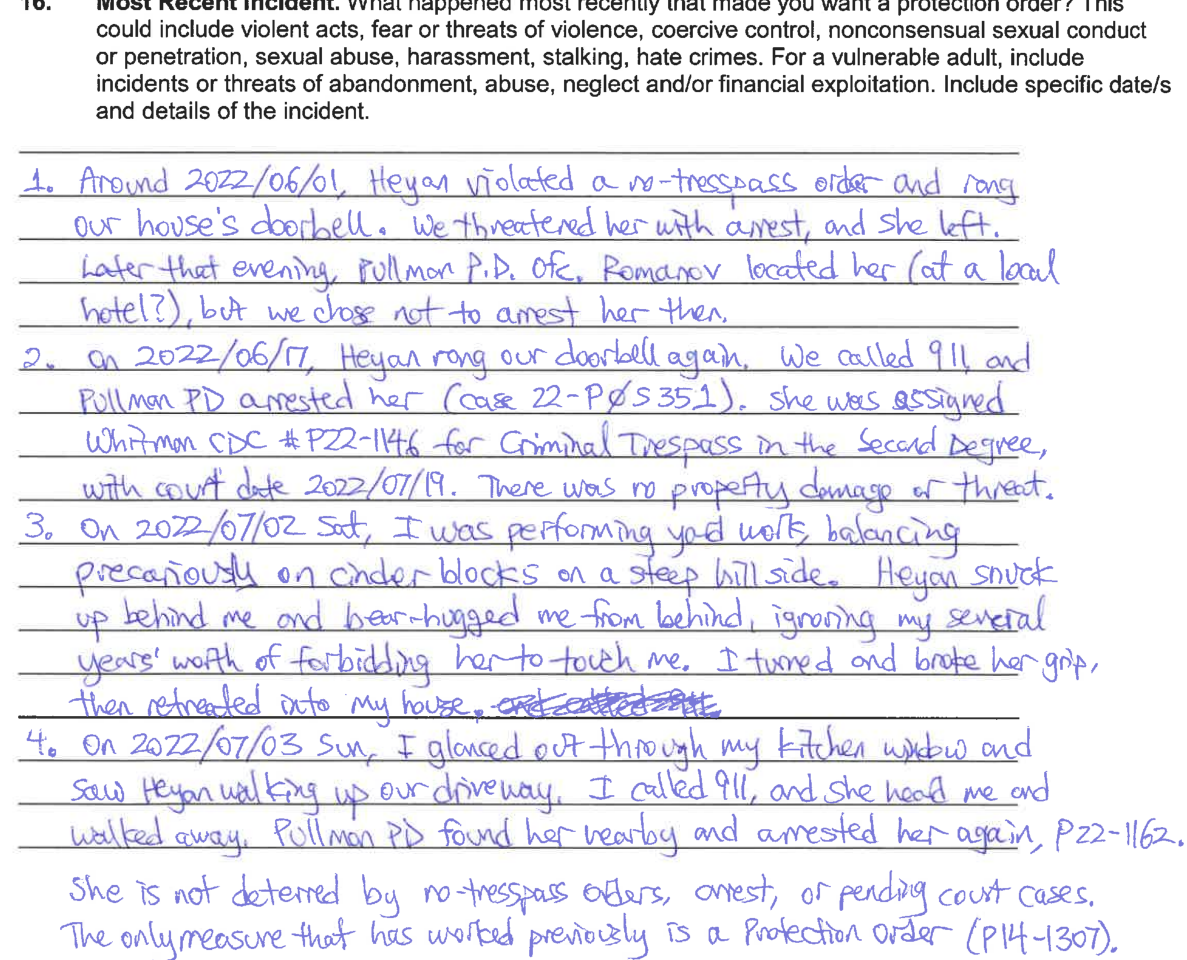 16. Most Recent Incident. What happened most recently that made you want a protection order? This
could include violent acts, fear or threats of violence, coercive control, nonconsensual sexual conduct
or penetration, sexual abuse, harassment, stalking, hate crimes. For a vulnerable adult, include
incidents or threats of abandonment, abuse, neglect and/or financial exploitation. Include specific date/s
and details of the incident.
1. Around 2022/06/01, Heyan violated a no-tresspass order and rang
our house's doorbell. We threatened her with arrest, and she left.
Later that evening, Pullman P.D. Ofc. Romanov located her (at a local
hotel?), but we chose not to arrest her then.
2. On 2022/06/17, Heyan rang our doorbell again. We called 911, and
Pullman PD arrested her (case 22-PØ5351). She was assigned
Whitman CDC #P22-1146 for Criminal Trespass in the Second Degree,
with court date 2022/07/19. There was no property damage or threat.
3. On 2022/07/02 Sat, I was performing yard work, balancing
precariously on cinder blocks on a steep hill side. Heyan snuck
up behind me and bear-hugged me from behind, ignoring my several
years' worth of forbidding her to touch me. I turned and broke her grip,
then retreated into my house.
4. On 2022/07/03 Sun, I glanced out through my kitchen window and
saw Heyan walking up our driveway. I called 911, and she heard me and
walked away. Pullman PD found her nearby and arrested her again, P22-1162.
She is not deterred by no-tresspass orders, arrest, or pending court cases.
The only measure that has worked previously is a Protection Order (P14-1307).